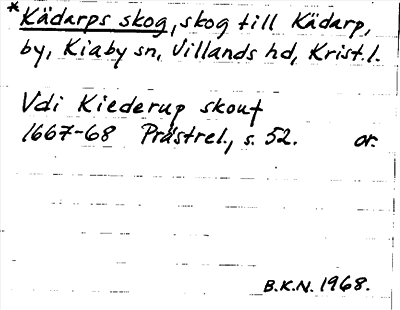 *Kädarps skog, skog till Kädarp,
by, Kiaby sn, Villands hd, Krist. l.
Vdi Kiederup skouf
1667-68 Prästrel., s. 52. or.
B.K.N. 1968.